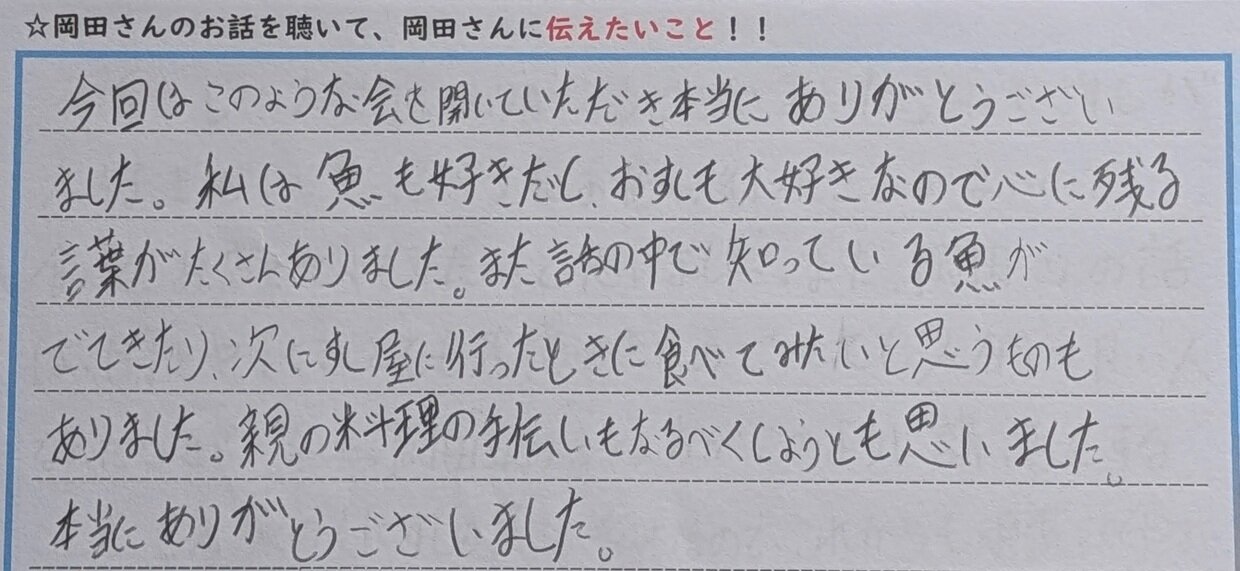 ☆岡田さんのお話を聴いて、岡田さんに伝えたいこと！！
今回はこのような会を開いていただき本当にありがとうござい
ました。私は魚も好きだし、おすしも大好きなので心に残る
言葉がたくさんありました。また話の中で知っている魚が
でてきたり、次にすし屋に行ったときに食べてみたいと思うものも
ありました。親の料理の手伝いもなるべくしようとも思いました。
本当にありがとうございました。